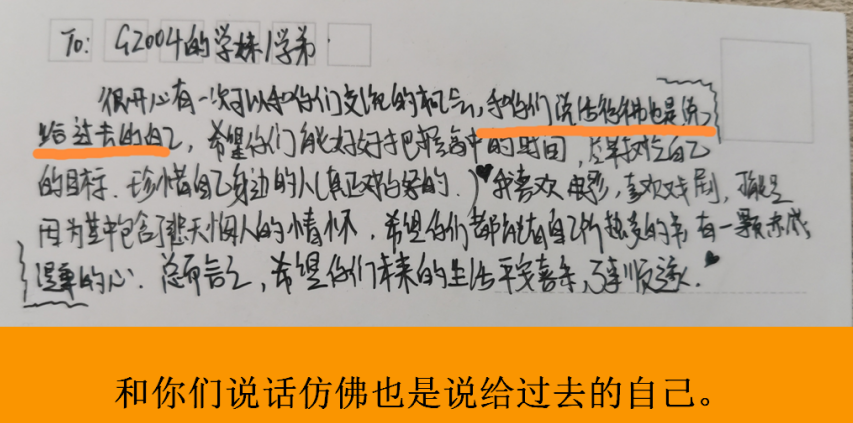 To: G2004的学妹/学弟
很开心有一次可以和你们交流的机会,和你们说话仿佛也是说
给过去的自己,希望你们能好好把握高中的时间,尽早找好自己
的目标、珍惜自己身边的人(真正对你好的.)♥我喜欢电影,喜欢戏剧,可能是
因为其中包含了悲天悯人的情怀.希望你们都能有自己所热爱的事,有一颗赤诚
温柔的心.总而言之,希望你们未来的生活平安喜乐,万事顺遂.♥
和你们说话仿佛也是说给过去的自己。